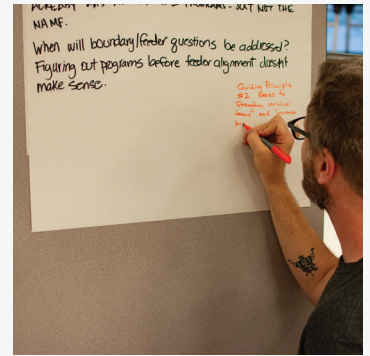 ALREADY HAS PROGRAMS - JUST NOT THE
NAME.
When will boundary/feeder questions be addressed?
Figuring out programs before feeder alignment doesn't
make sense.
Guiding Principle
#2 Seeks to
Strengthen vertical
and increase